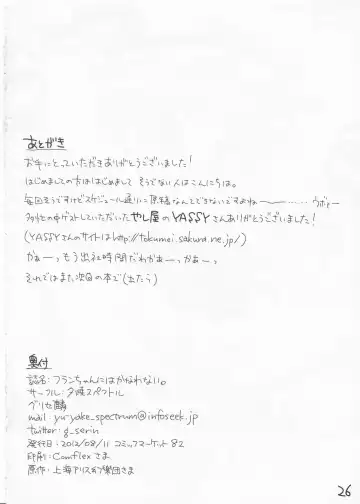 あとがき
お手にとっていただきありがとうございました!
はじめましての方ははじめまして そうでない人はこんにちは。
毎回そうですけどスケジュール通りに原稿なんてできないですよね〜〜……ウボァー
多忙の中ゲストしていただいた やし屋のYASSYさんありがとうございました!
(YASSYさんのサイトはhttp://tokumei.sakura.ne.jp/)
がぁーっもう出社時間だわがぁーっがぁー。
それではまた次回の本で(出たら)
奥付
誌名:フランちゃんにはかなわない。
サークル:夕焼スペクトル
グリセ麟
mail:yu-yake_spectrum@infoseek.jp
twitter:g_serin
発行日:2012/08/11 コミックマーケット82
印刷:Comflexさま
原作:上海アリス幻樂団さま
26